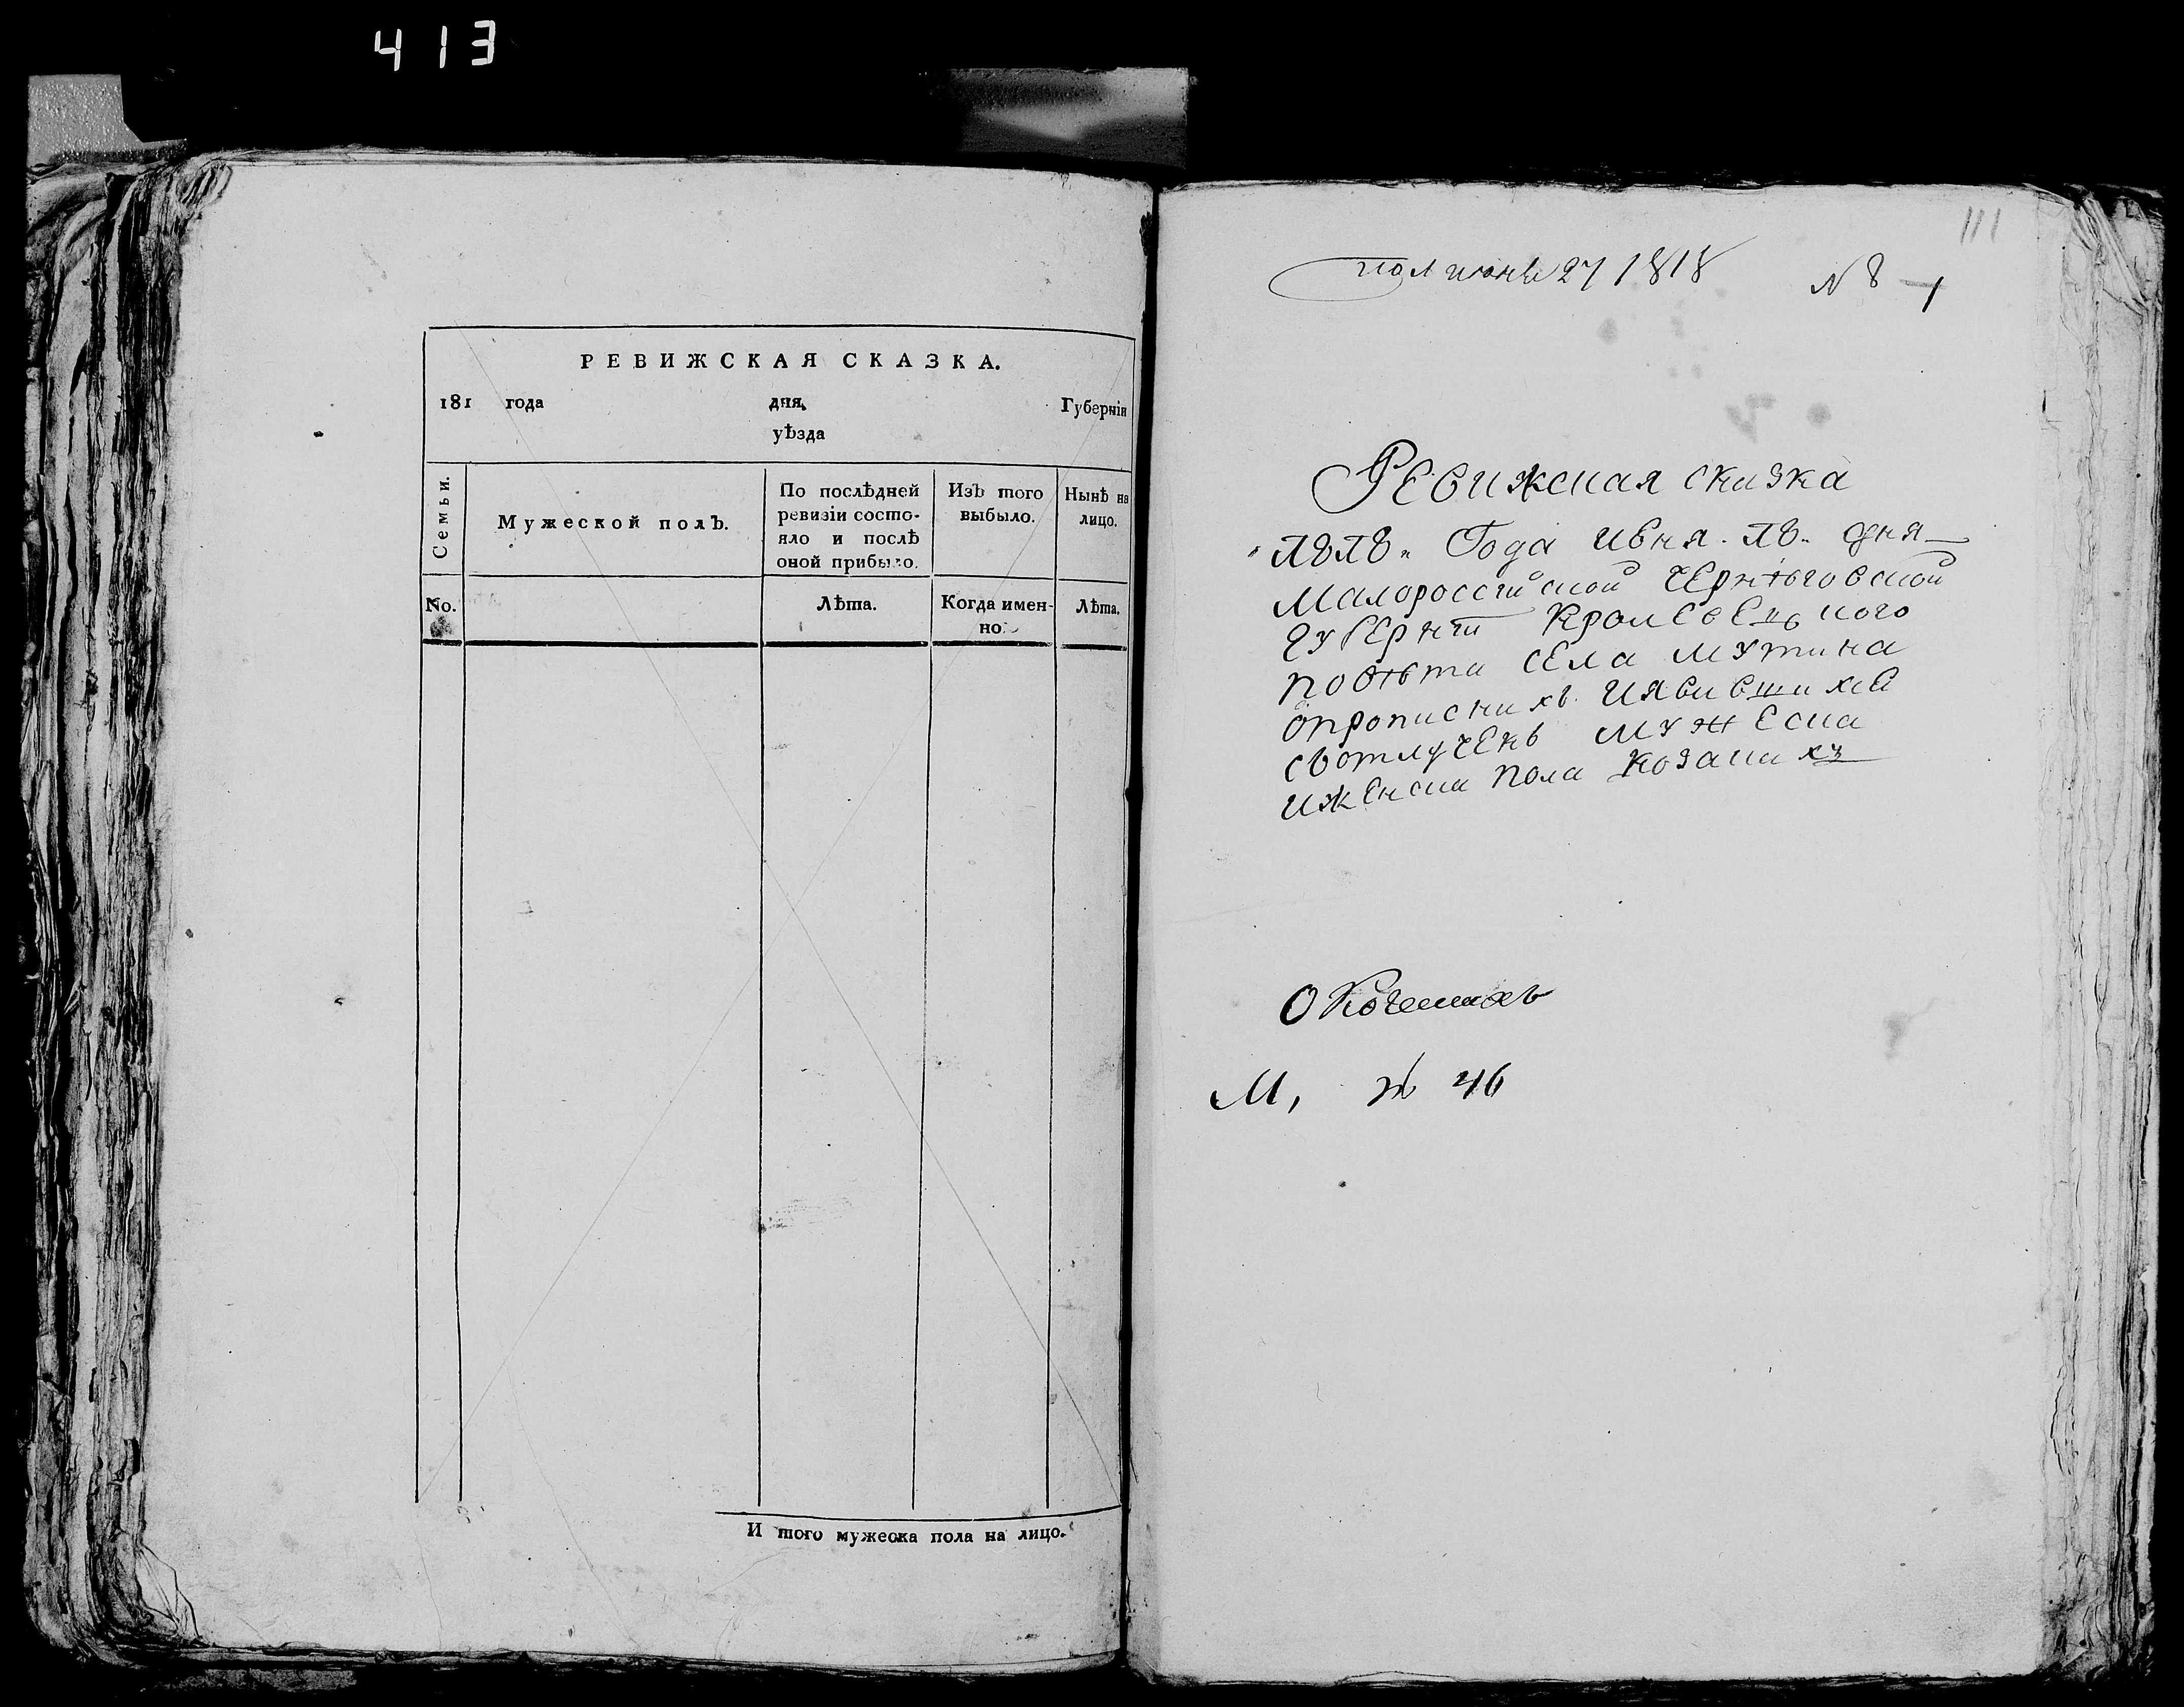 413
РЕВИЖСКАЯ СКАЗКА.
181 года дня, Губерніи
уѣзда
Семьи.
Мужеской полъ.
По послѣдней ревизіи состояло и послѣ оной прибыло.
Изъ того выбыло.
Нынѣ на лицо.
No.
Лѣта.
Когда именно.
Лѣта.
И того мужеска пола на лицо.
111
пол июня 27 1818 N 8
Ревижская сказка
Года июня дня
Малороссийской Чернѣговской
Губернии Кролевецкого
Повѣта села Мутина
опрописнихъ иявившихся
сьотлучекъ мужеска
иженска пола козакихъ
О
М, ж 46